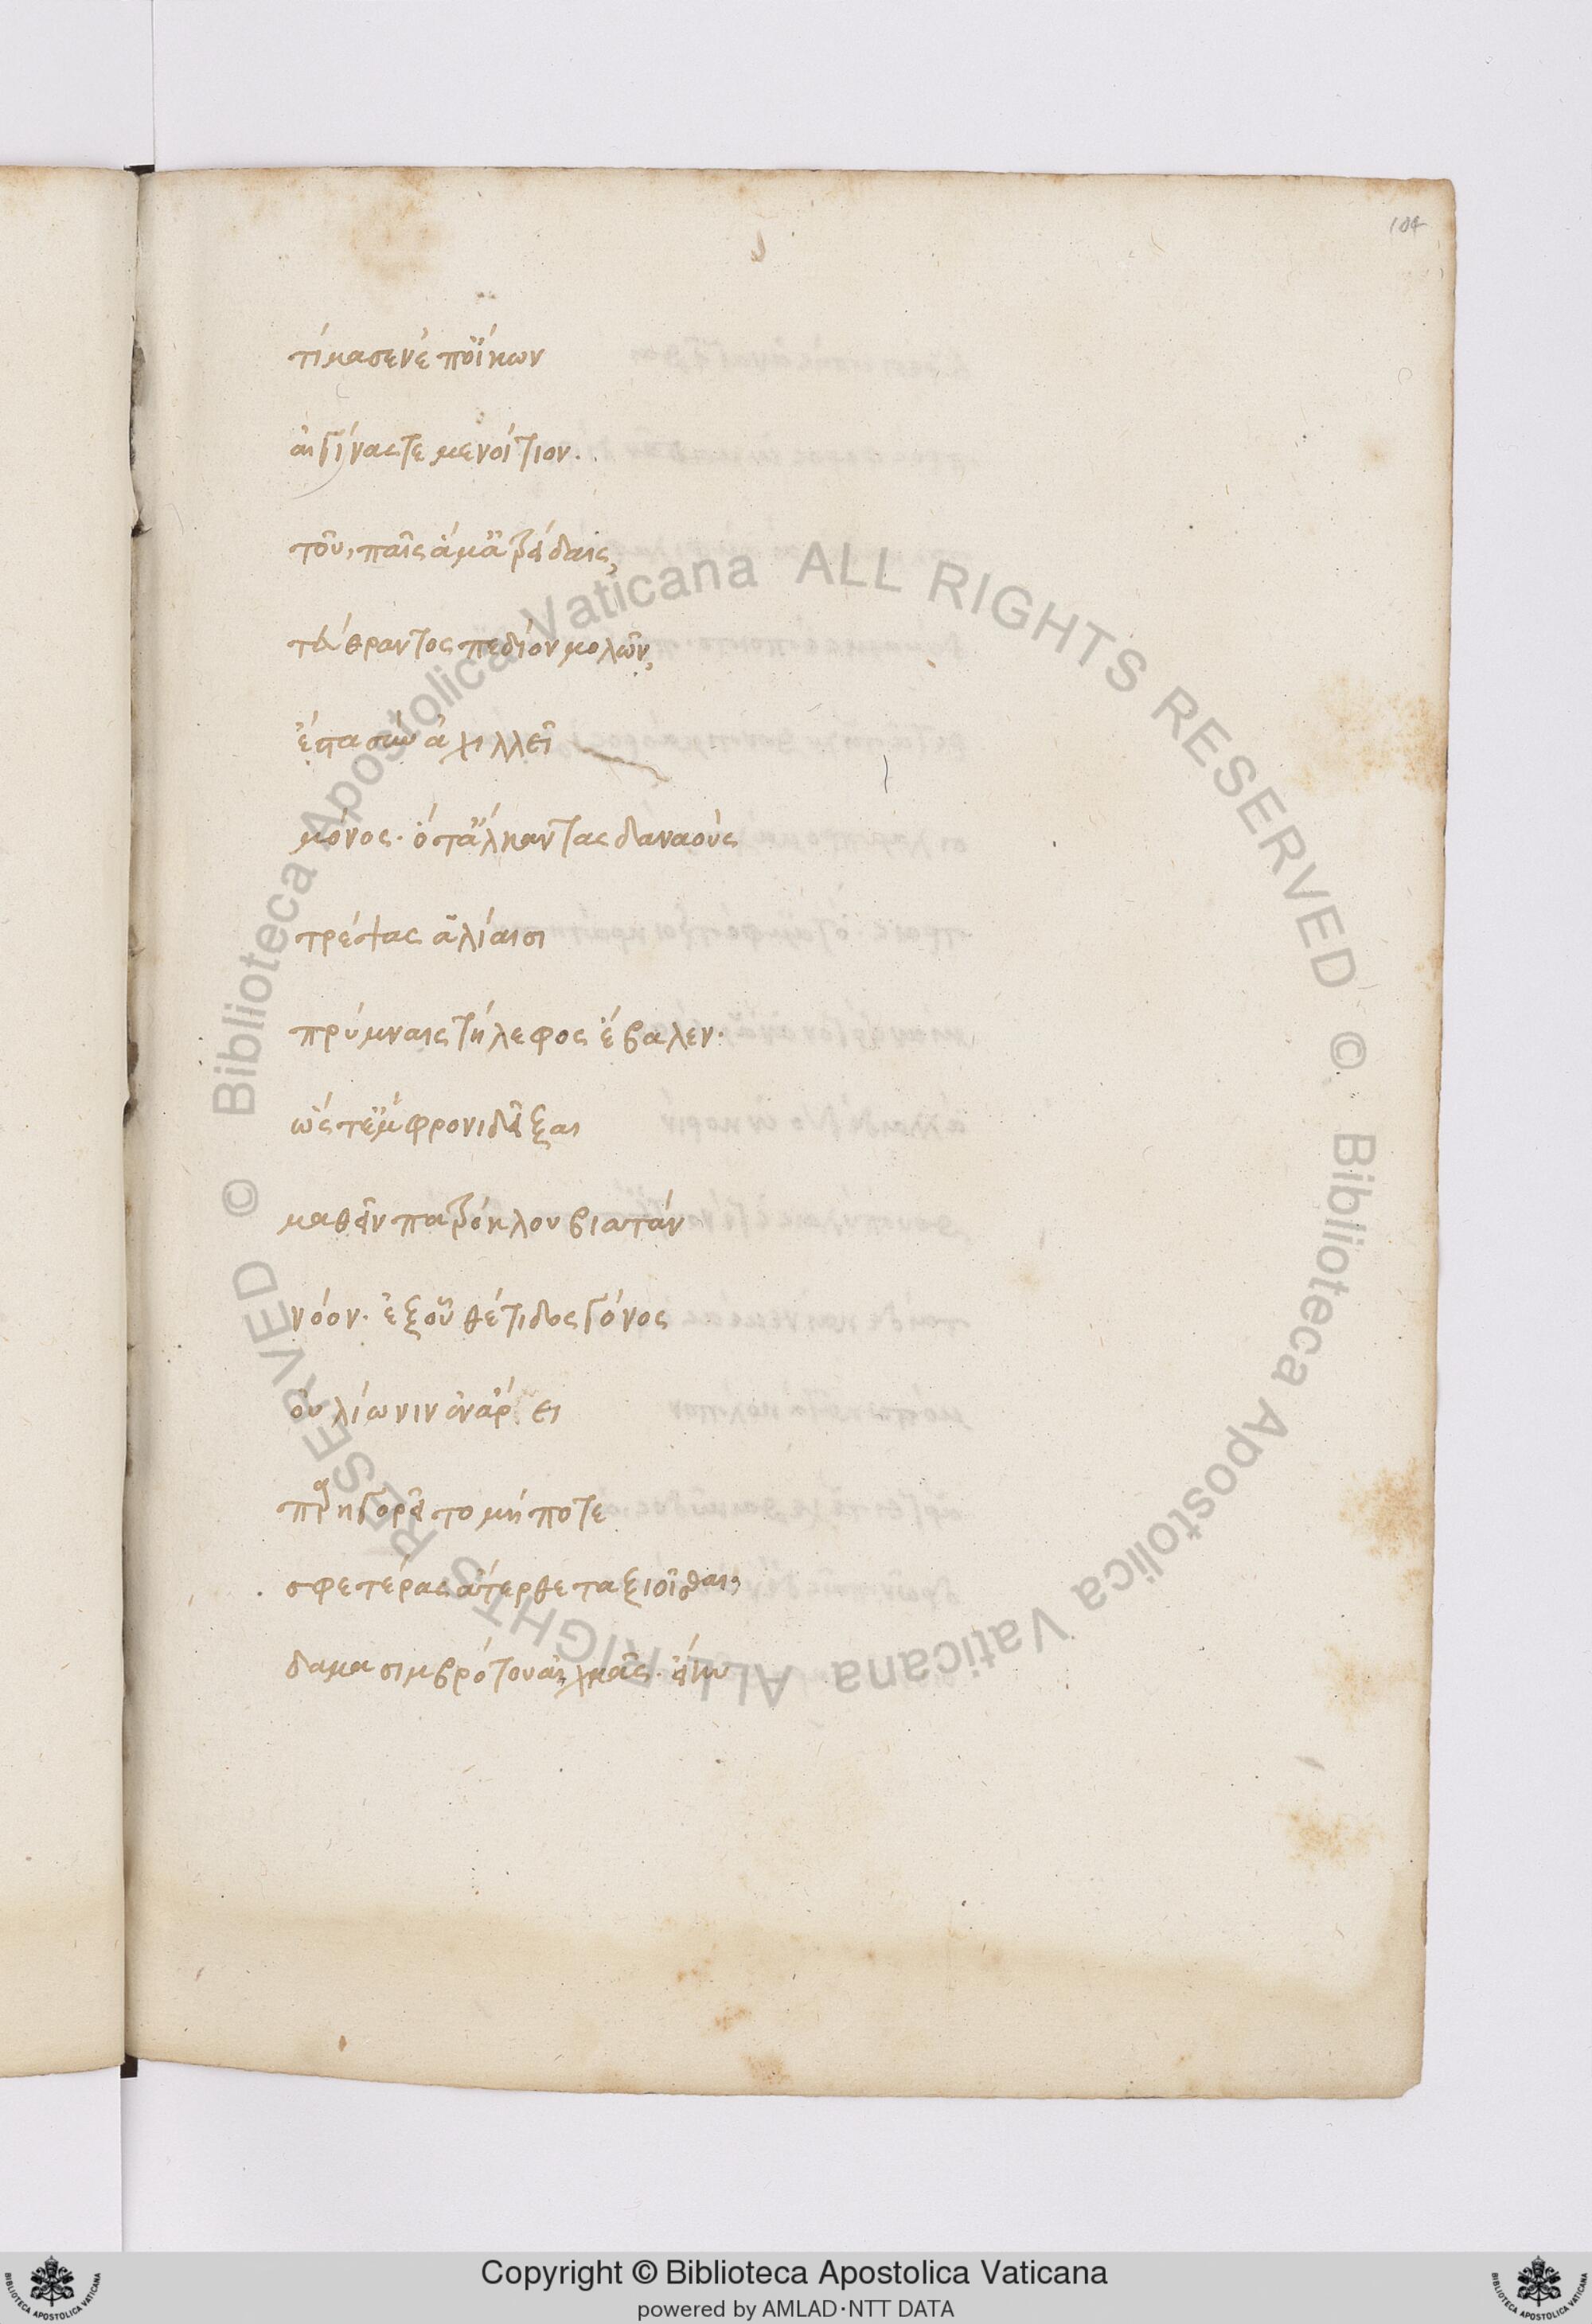 104
τίμασεν ἐποίκων
αἰγίνας τε μενοίτιον.
τοῦ, παῖς ἅμ' ἀτρείδαις,
τεύθραντος πεδίον μολὼν,
ἔστα σὺν ἀχιλλεῖ
μόνος. ὅτ' ἀλκάντας δαναοὺς
τρέψας ἁλίαισι
πρύμναις τήλεφος ἔβαλεν.
ὥστ' ἔμφρονι δεῖξαι
μαθεῖν πατρόκλου βιατὰν
νόον. ἐξ οὗ θέτιδος γόνος
οὐλίω νιν ἐν ἄρει
παρηγορεῖτο μήποτε
σφετέρας ἄτερθε ταξιοῦσθαι,
δαμασιμβρότου αἰχμᾶς. εἴην
© Biblioteca Apostolica Vaticana ALL RIGHTS RESERVED © Biblioteca Apostolica Vaticana ALL RIGHTS RESERVED
Copyright © Biblioteca Apostolica Vaticana
powered by AMLAD・NTT DATA
BIBLIOTECA APOSTOLICA VATICANA
BIBLIOTECA APOSTOLICA VATICANA